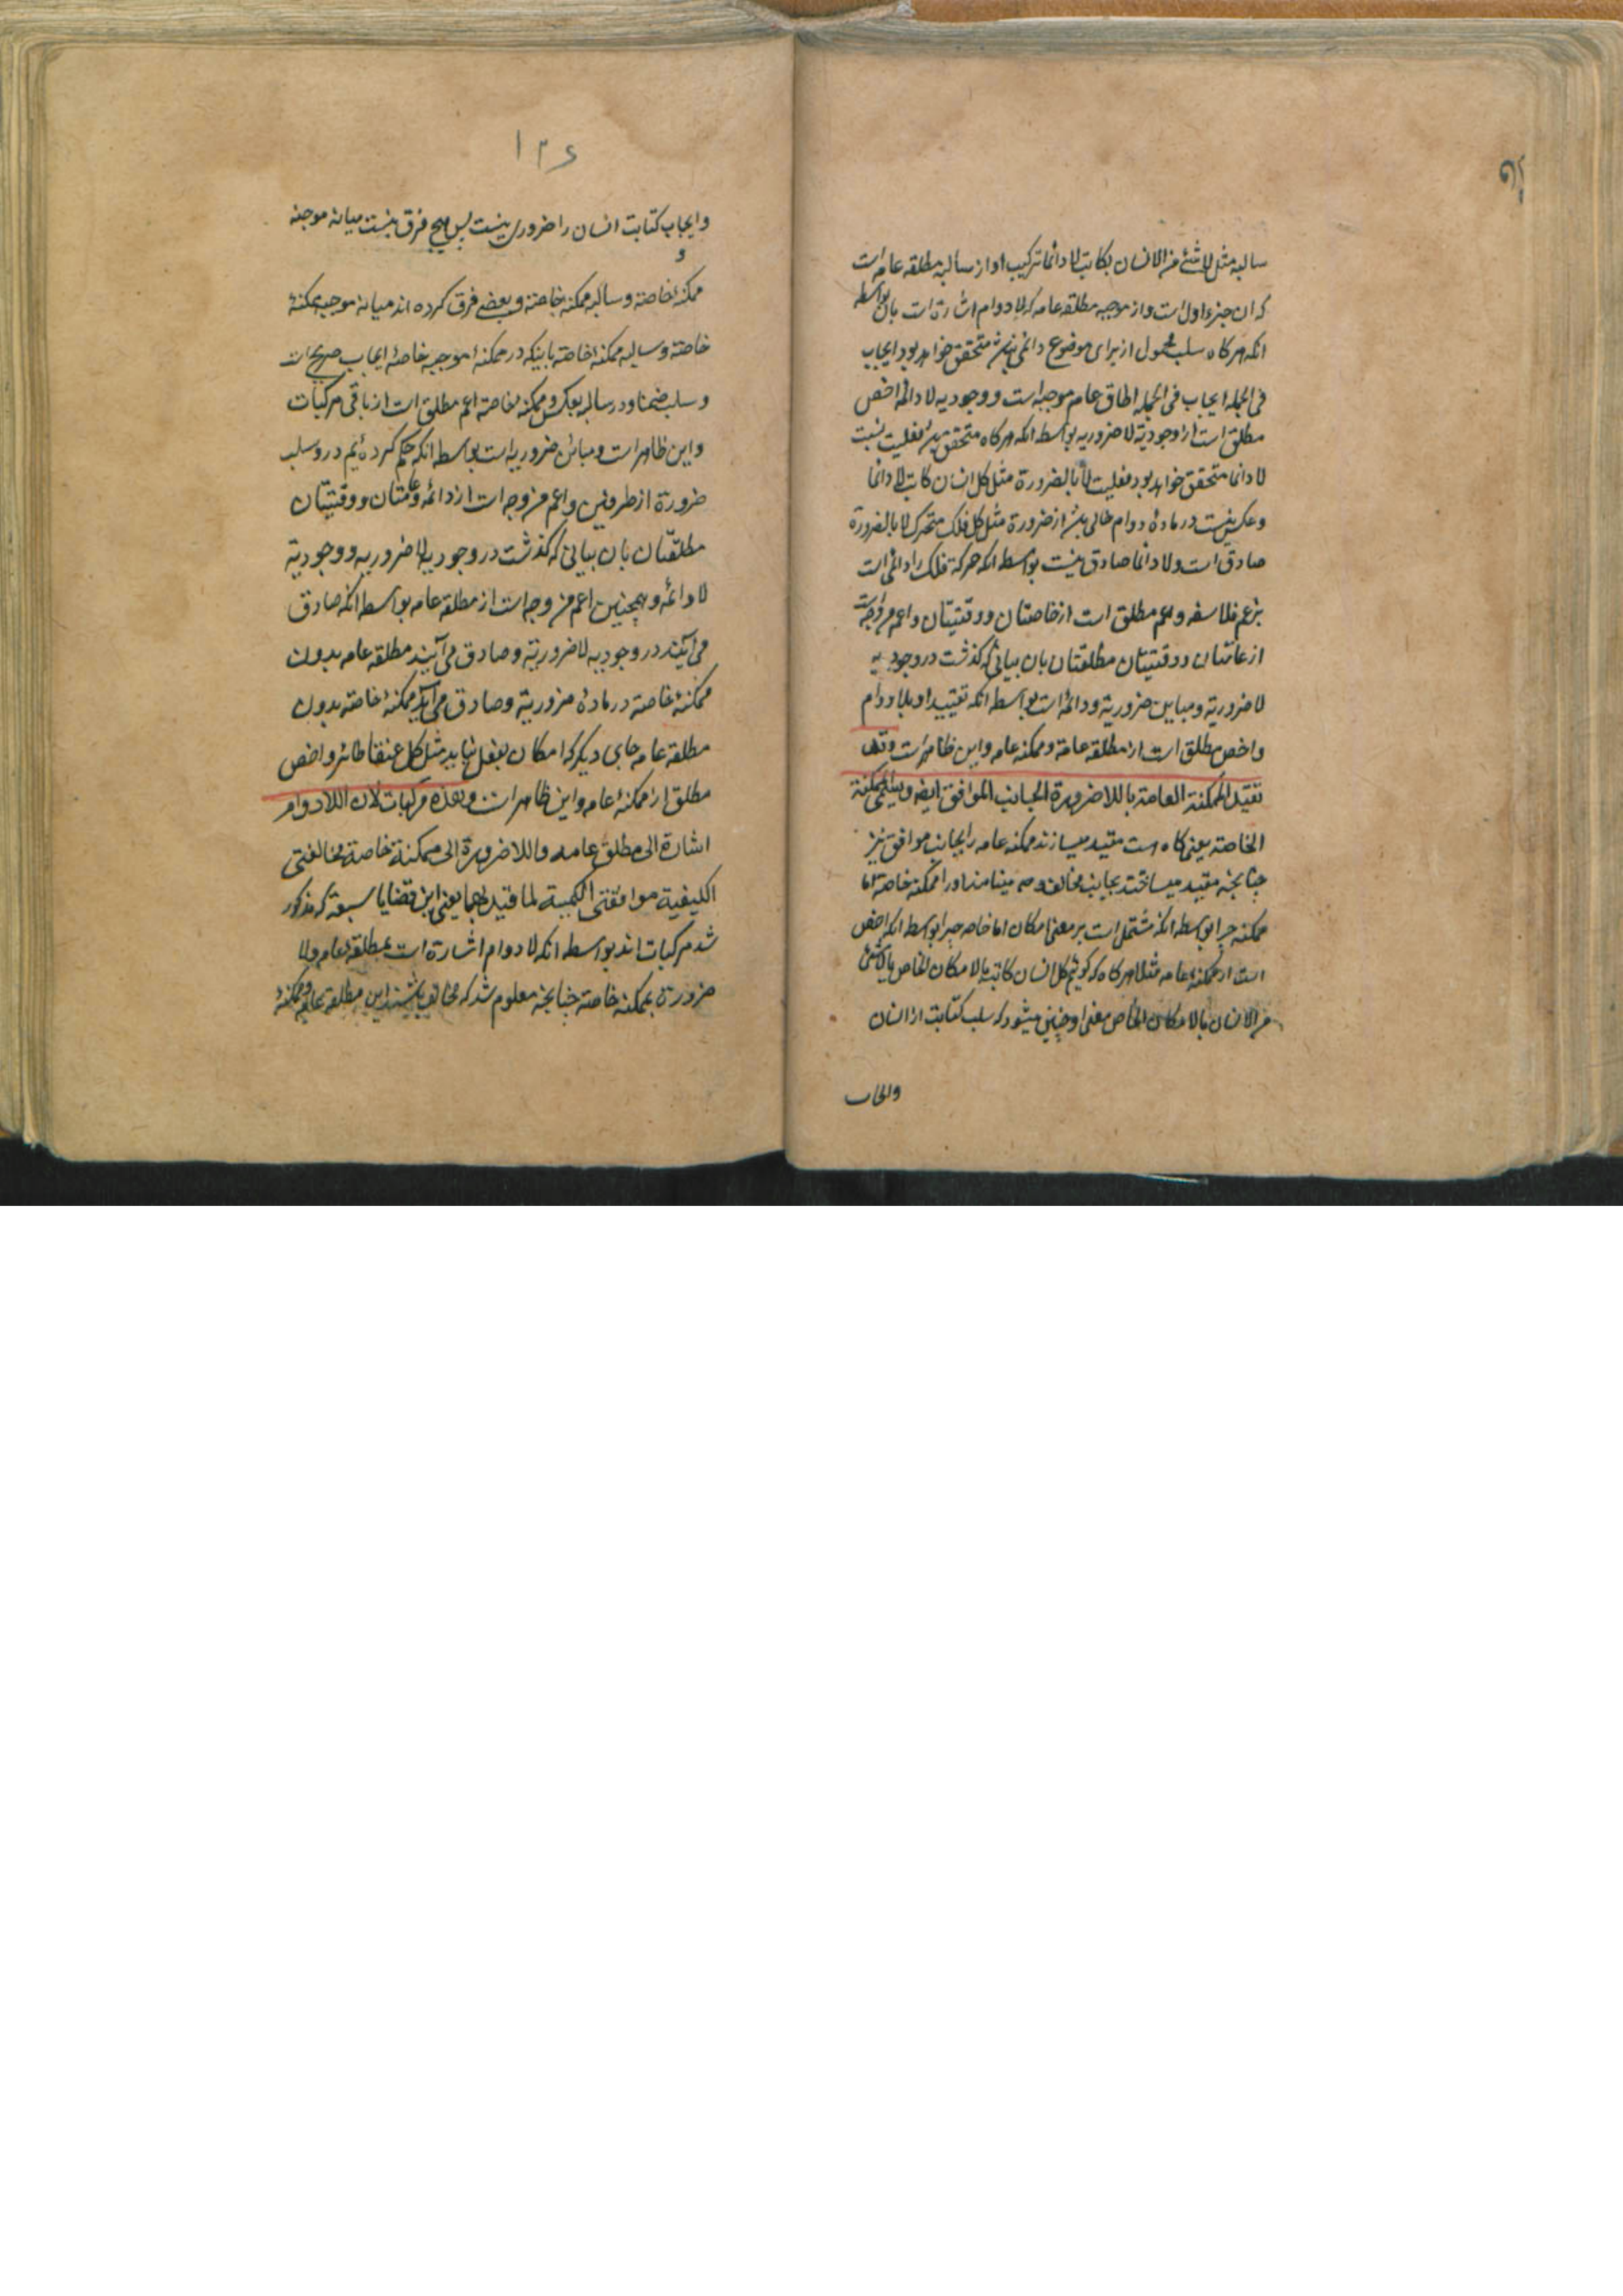 سالبه مثل لا شئ من الانسان بكاتب لا دائما تركيب او از سالبه مطلقه عامه است
كه ان جزء اول است و از موجبه مطلقه عامه كه لا دوام اشارت است بان بواسطه
انكه هركاه سلب محمول از براى موضوع دائمى نباشد متحقق خواهد بود ايجاب
فى الجمله ايجاب فى الجمله اطلاق عام موجبه است و وجوديه لا دائمه اخص
مطلق است از وجوديّه لا ضروريه بواسطه انكه هركاه متحقق فعليت نسبت
لا دائما متحقق خواهد بود فعليت لا بالضرورة مثل كل انسان كاتب لا دائما
و عكس نيست در مادهٔ دوام خالى باشد از ضرورة مثل كل فلك متحرك لا بالضرورة
صادق است و لا دائما صادق نيست بواسطه انكه حركة فلك را دائمى است
بزعم فلاسفه و اعم مطلق است از خاصتان و وقتيتان و اعم من وجه است
از عامتان و وقتيتان مطلقتان بان بيانى كه كذشت در وجوديه
لا ضروريّه و مباين ضروريّه و دائمه است بواسطه انكه تقييد او بلا دوام
و اخص مطلق است از مطلقه عامة و ممكنه عامه و اين ظاهر است وقد
تقيد الممكنة العامة باللاضرورة الجانب الموافق ايضا ويسمى الممكنة
الخاصة يعنى كاه هست مقيد ميسازند ممكنه عامه را بجانب موافق نيز
چنانچه مقيد ميساختند بجانب مخالف و مينامند او را ممكنه خاصه اما
ممكنه چرا بواسطه انكه مشتمل است بر معنى امكان اما خاصه چرا بواسطه انكه اخص
است از ممكنهٔ عامه مثلا هركاه كه كوئيم كل انسان كاتب بالامكان الخاص يا لا شئ
من الانسان بالامكان الخاص معنى او چنين ميشود كه سلب كتابت از انسان
وايجاب
١٣٤
وايجاب كتابت انسان را ضرورى نيست پس هيچ فرق نيست ميانه موجبه
ممكنهٔ خاصة و سالبه ممكنهٔ خاصته و بعضے فرق كرده اند ميانه موجبه ممكنهٔ
خاصته و سالبه ممكنهٔ خاصته باينكه در ممكنهٔ موجبه خاصهٔ ايجاب صريح است
و سلب ضمنا و در سالبه بعكس و ممكنه خاصة اعم مطلق است از باقى مركبات
و اين ظاهر است و مباين ضروريه است بواسطه انكه حكم كرده ئيم درو سلب
ضرورة از طرفين و اعم من وجه است از دائمه و عامتان و وقتيتان
مطلقتان بان بيانى كه كذشت در وجوديه لا ضروريه و وجوديّة
لا دائمه و همچنين اعم من وجه است از مطلقه عامه بواسطه انكه صادق
مى آيند در وجوديه لا ضروريّة و صادق مى آيند مطلقه عامه بدون
ممكنهٔ خاصته در مادهٔ ضروريّة و صادق مى آيد ممكنهٔ خاصته بدون
مطلقه عامه جاى ديكر كه امكان بفعل نيايد مثل كل عنقا طائر و اخص
مطلق از ممكنهٔ عامه و اين ظاهر است وهذه مركبات لان اللادوام
اشارة الى مطلقة عامه واللاضرورة الى ممكنة خاصة مخالفتى
الكيفية موافقتى الكمية لما قيد بهما يعنى اين قضايا سبعة كه مذكور
شد مركبات اند بواسطه انكه لا دوام اشارة است بمطلقه عام و لا
ضرورة بممكنه خاصته چنانچه معلوم شد كه مخالف باشند اين مطلقه عامه و ممكنهٔ